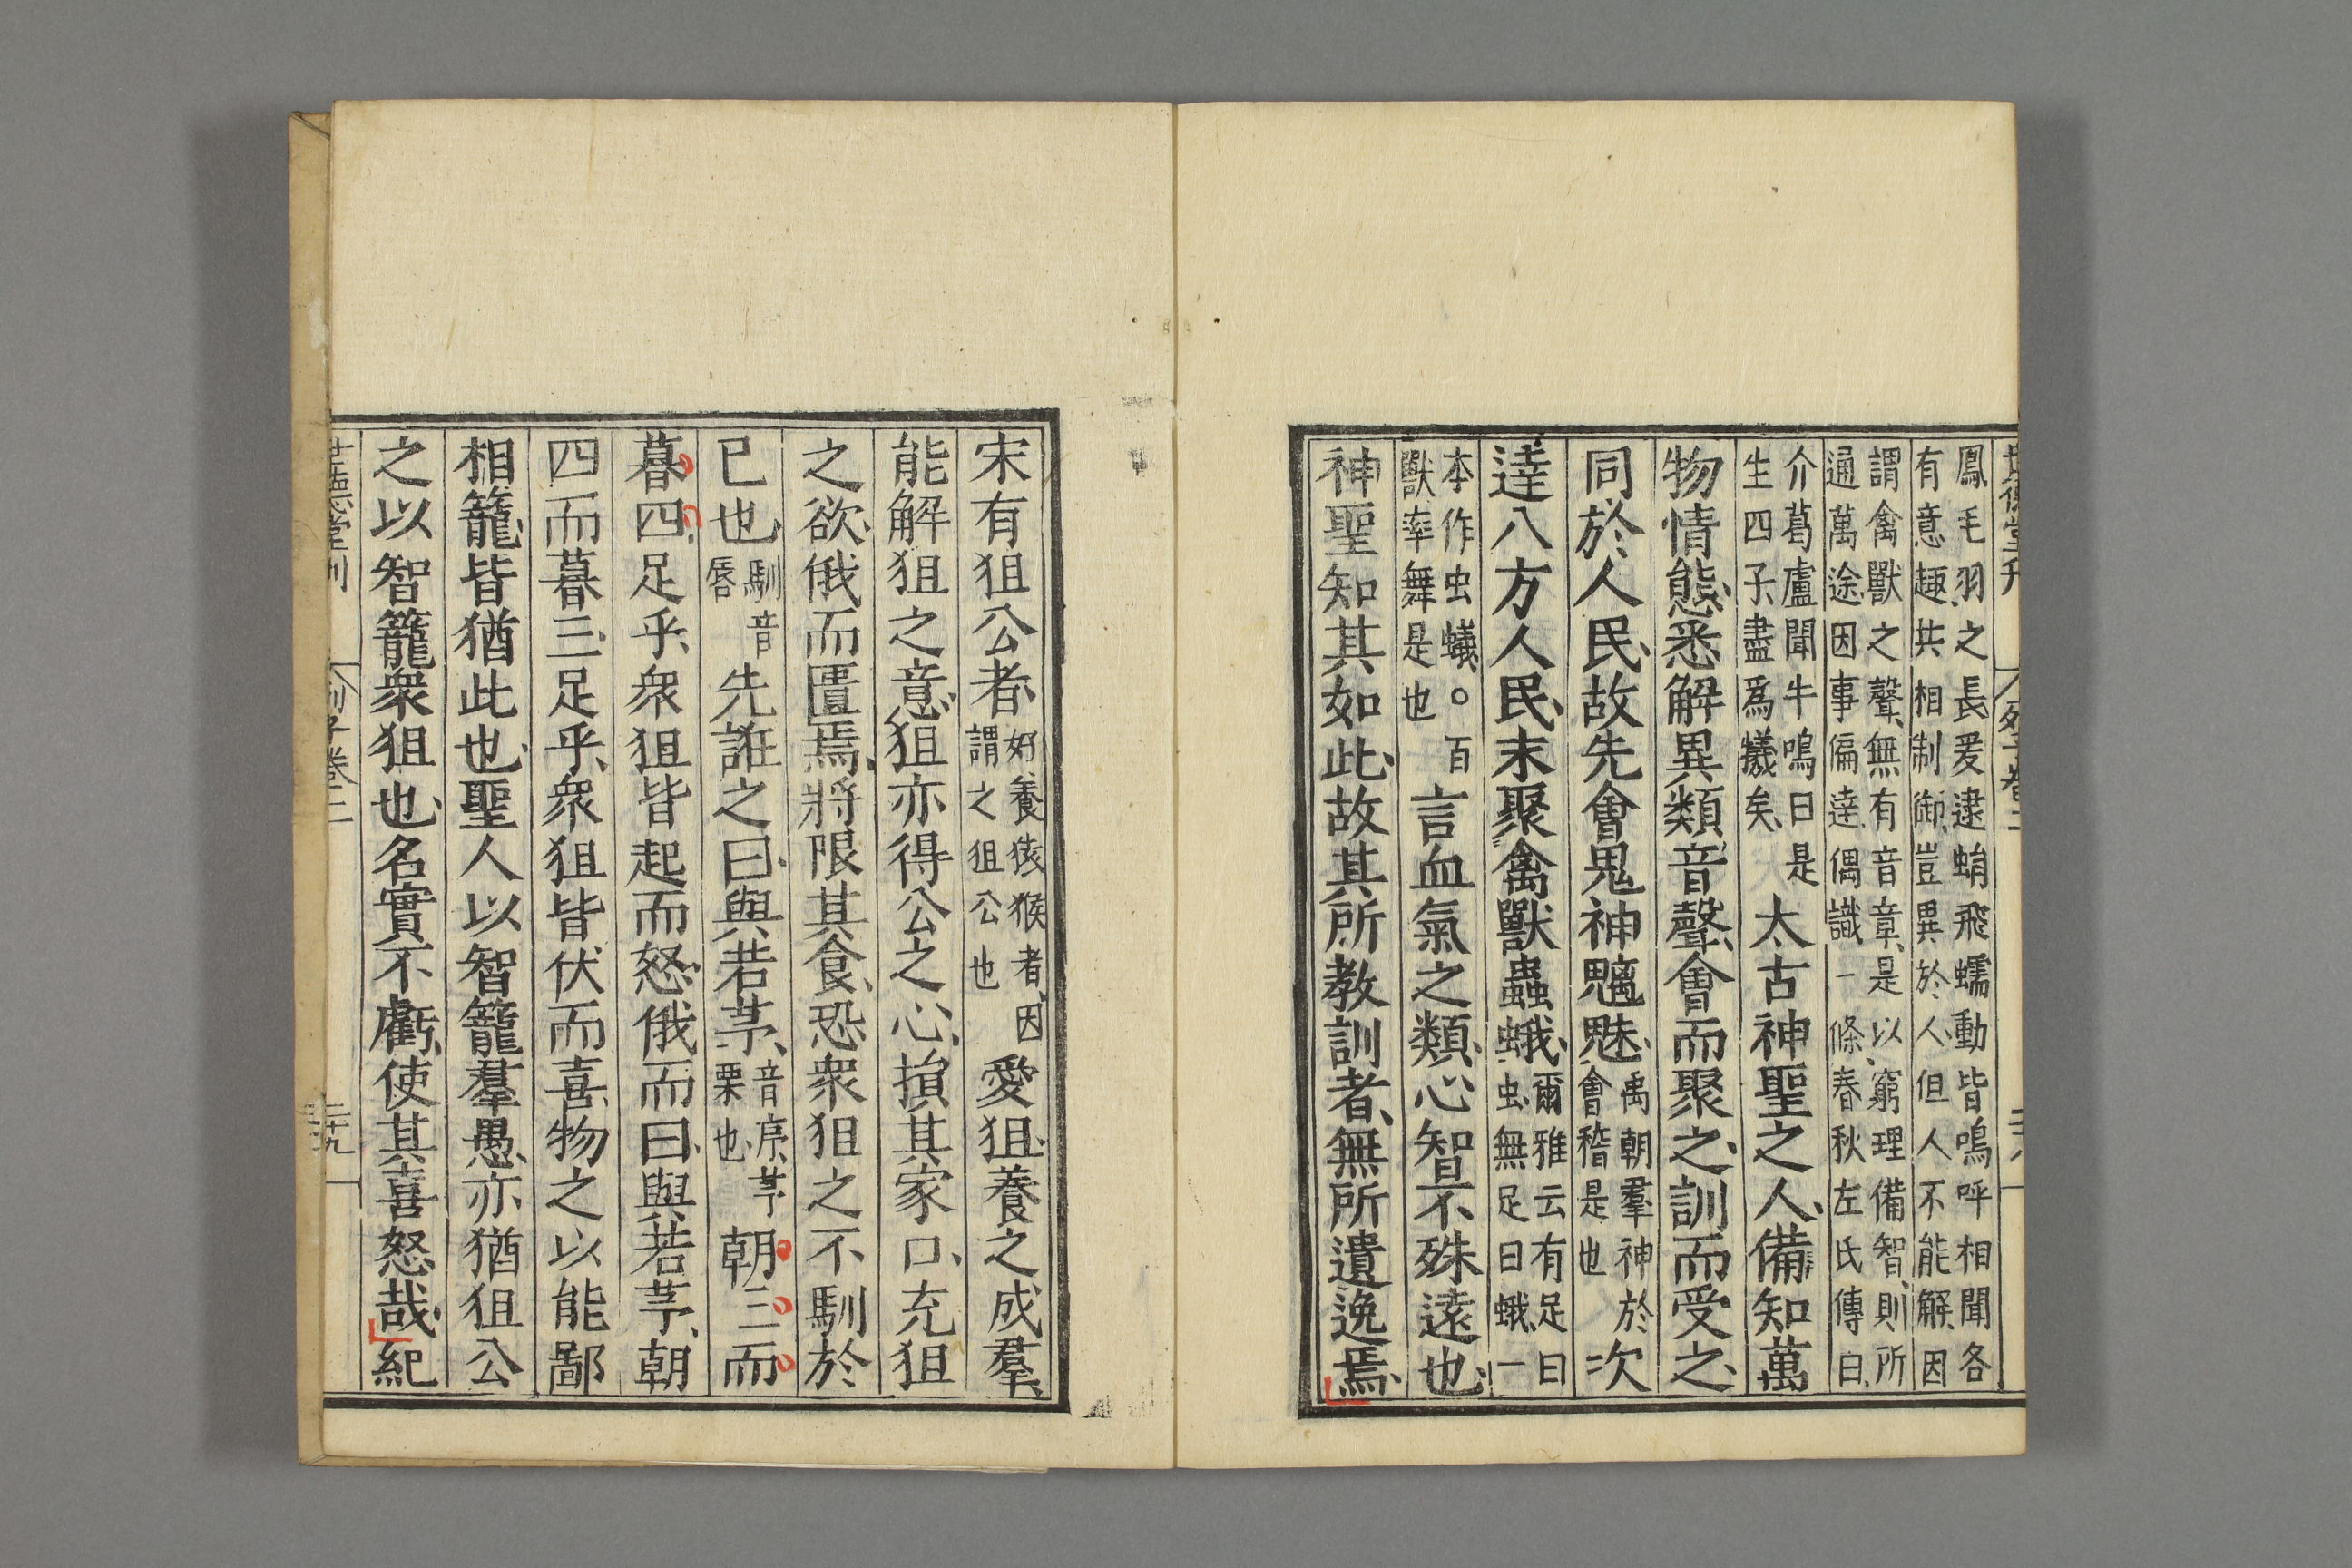 鳳毛羽之長爰逮蛸飛蠕動皆鳴呼相聞各
有意趣共相制御豈異於人但人不能解因
謂禽獸之聲無有音章是以窮理備智則所
通萬途因事偏達偶識一條春秋左氏傳曰
介葛盧聞牛鳴曰是
生四子盡爲犧矣
太古神聖之人備知萬
物情態悉解異類音聲會而聚之訓而受之
同於人民故先會鬼神魑魅
禹朝羣神於
會稽是也
次
達八方人民末聚禽獸蟲蛾
爾雅云有足曰
虫無足曰蛾一
本作虫蟻○百
獸率舞是也
言血氣之類心智不殊遠也
神聖知其如此故其所教訓者無所遺逸焉
宋有狙公者
好養猨猴者因
謂之狙公也
愛狙養之成羣
能解狙之意狙亦得公之心損其家口充狙
之欲俄而匱焉將限其食恐衆狙之不馴於
已也
馴音
唇
先誑之曰與若芧
音序芧
栗也
朝三而
暮四足乎衆狙皆起而怒俄而曰與若芧朝
四而暮三足乎衆狙皆伏而喜物之以能鄙
相籠皆猶此也聖人以智籠羣愚亦猶狙公
之以智籠衆狙也名實不虧使其喜怒哉紀
世德堂刊
列子卷二
二十九